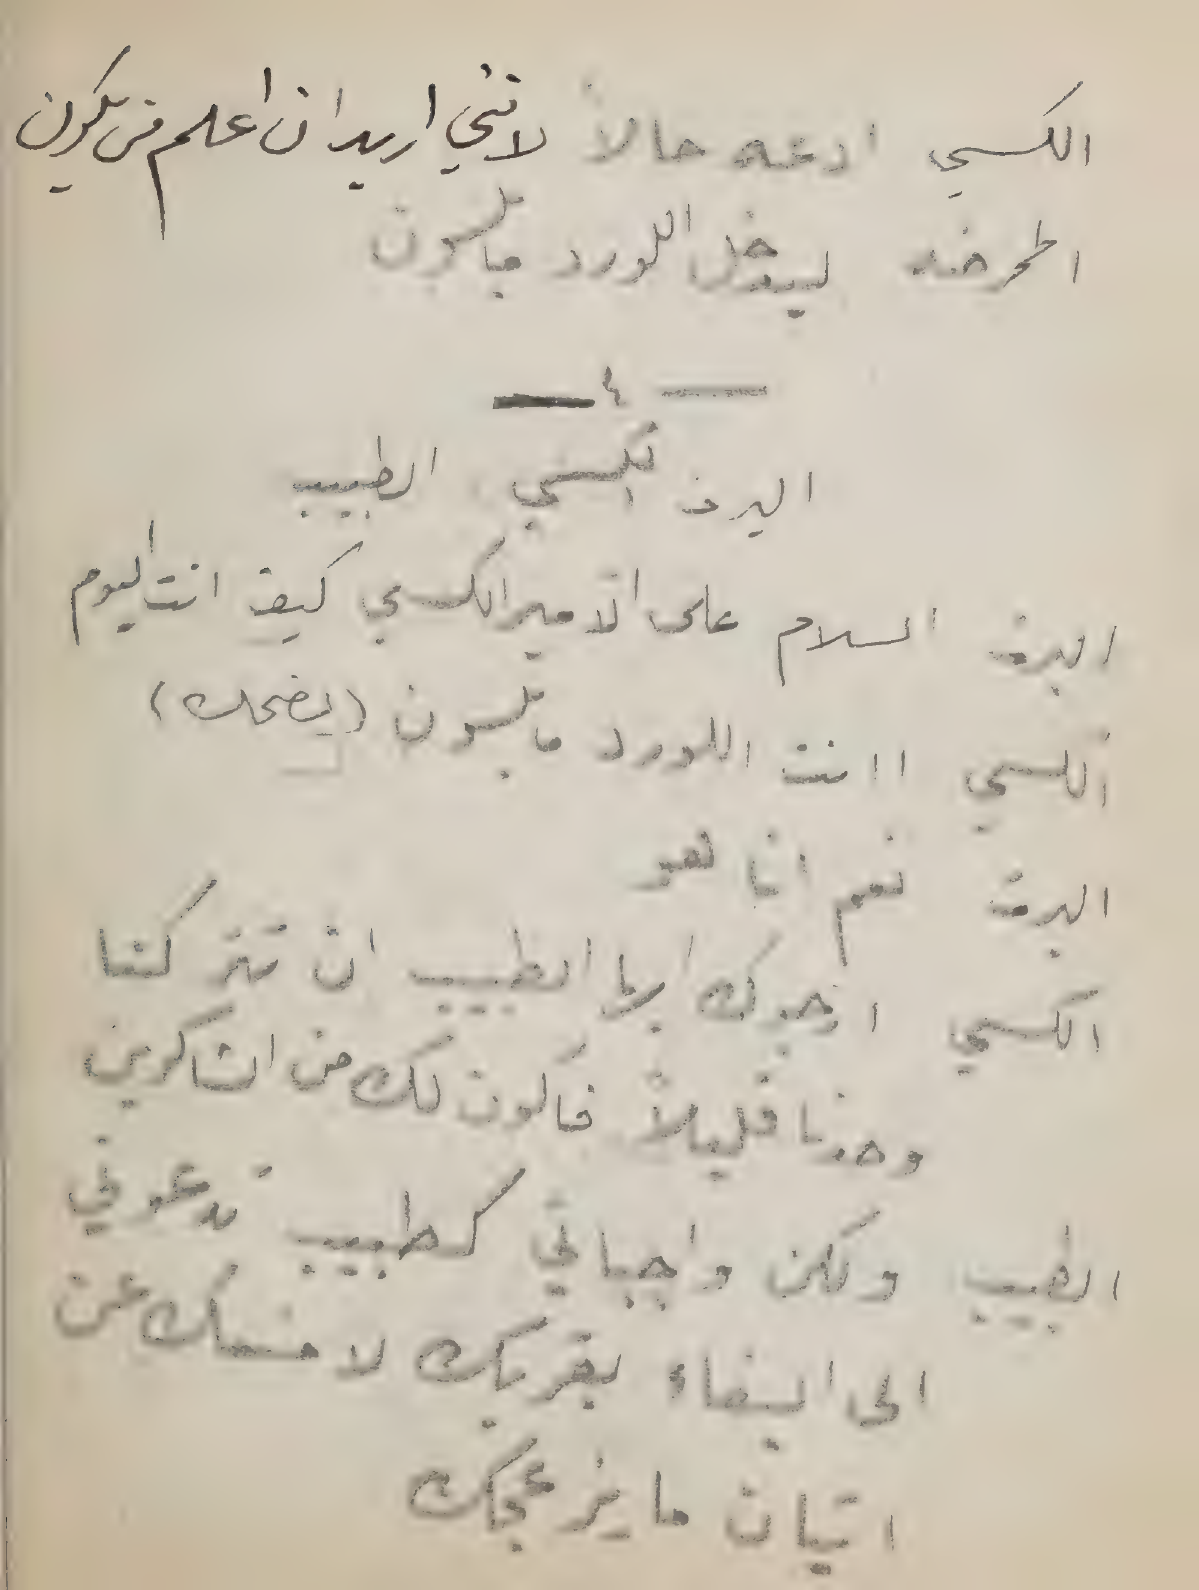 الكسي ادعه حالاً لانني اريد ان اعلم من يكون
الممرضه ليدخل اللورد مايلسون
— ٤ —
البرت الكسي الطبيب
البرت السلام على الامير الكسي كيف انت اليوم
الكسي اانت اللورد مايلسون (يضحك)
البرت نعم انا هو
الكسي ارجوك ايها الطبيب ان تتركنا
وحدنا قليلاً فاكون لك من الشاكرين
الطبيب ولكن واجباتي كطبيب تدعوني
الى البقاء بقربك لامنعك عن
اتيان ما يزعجك